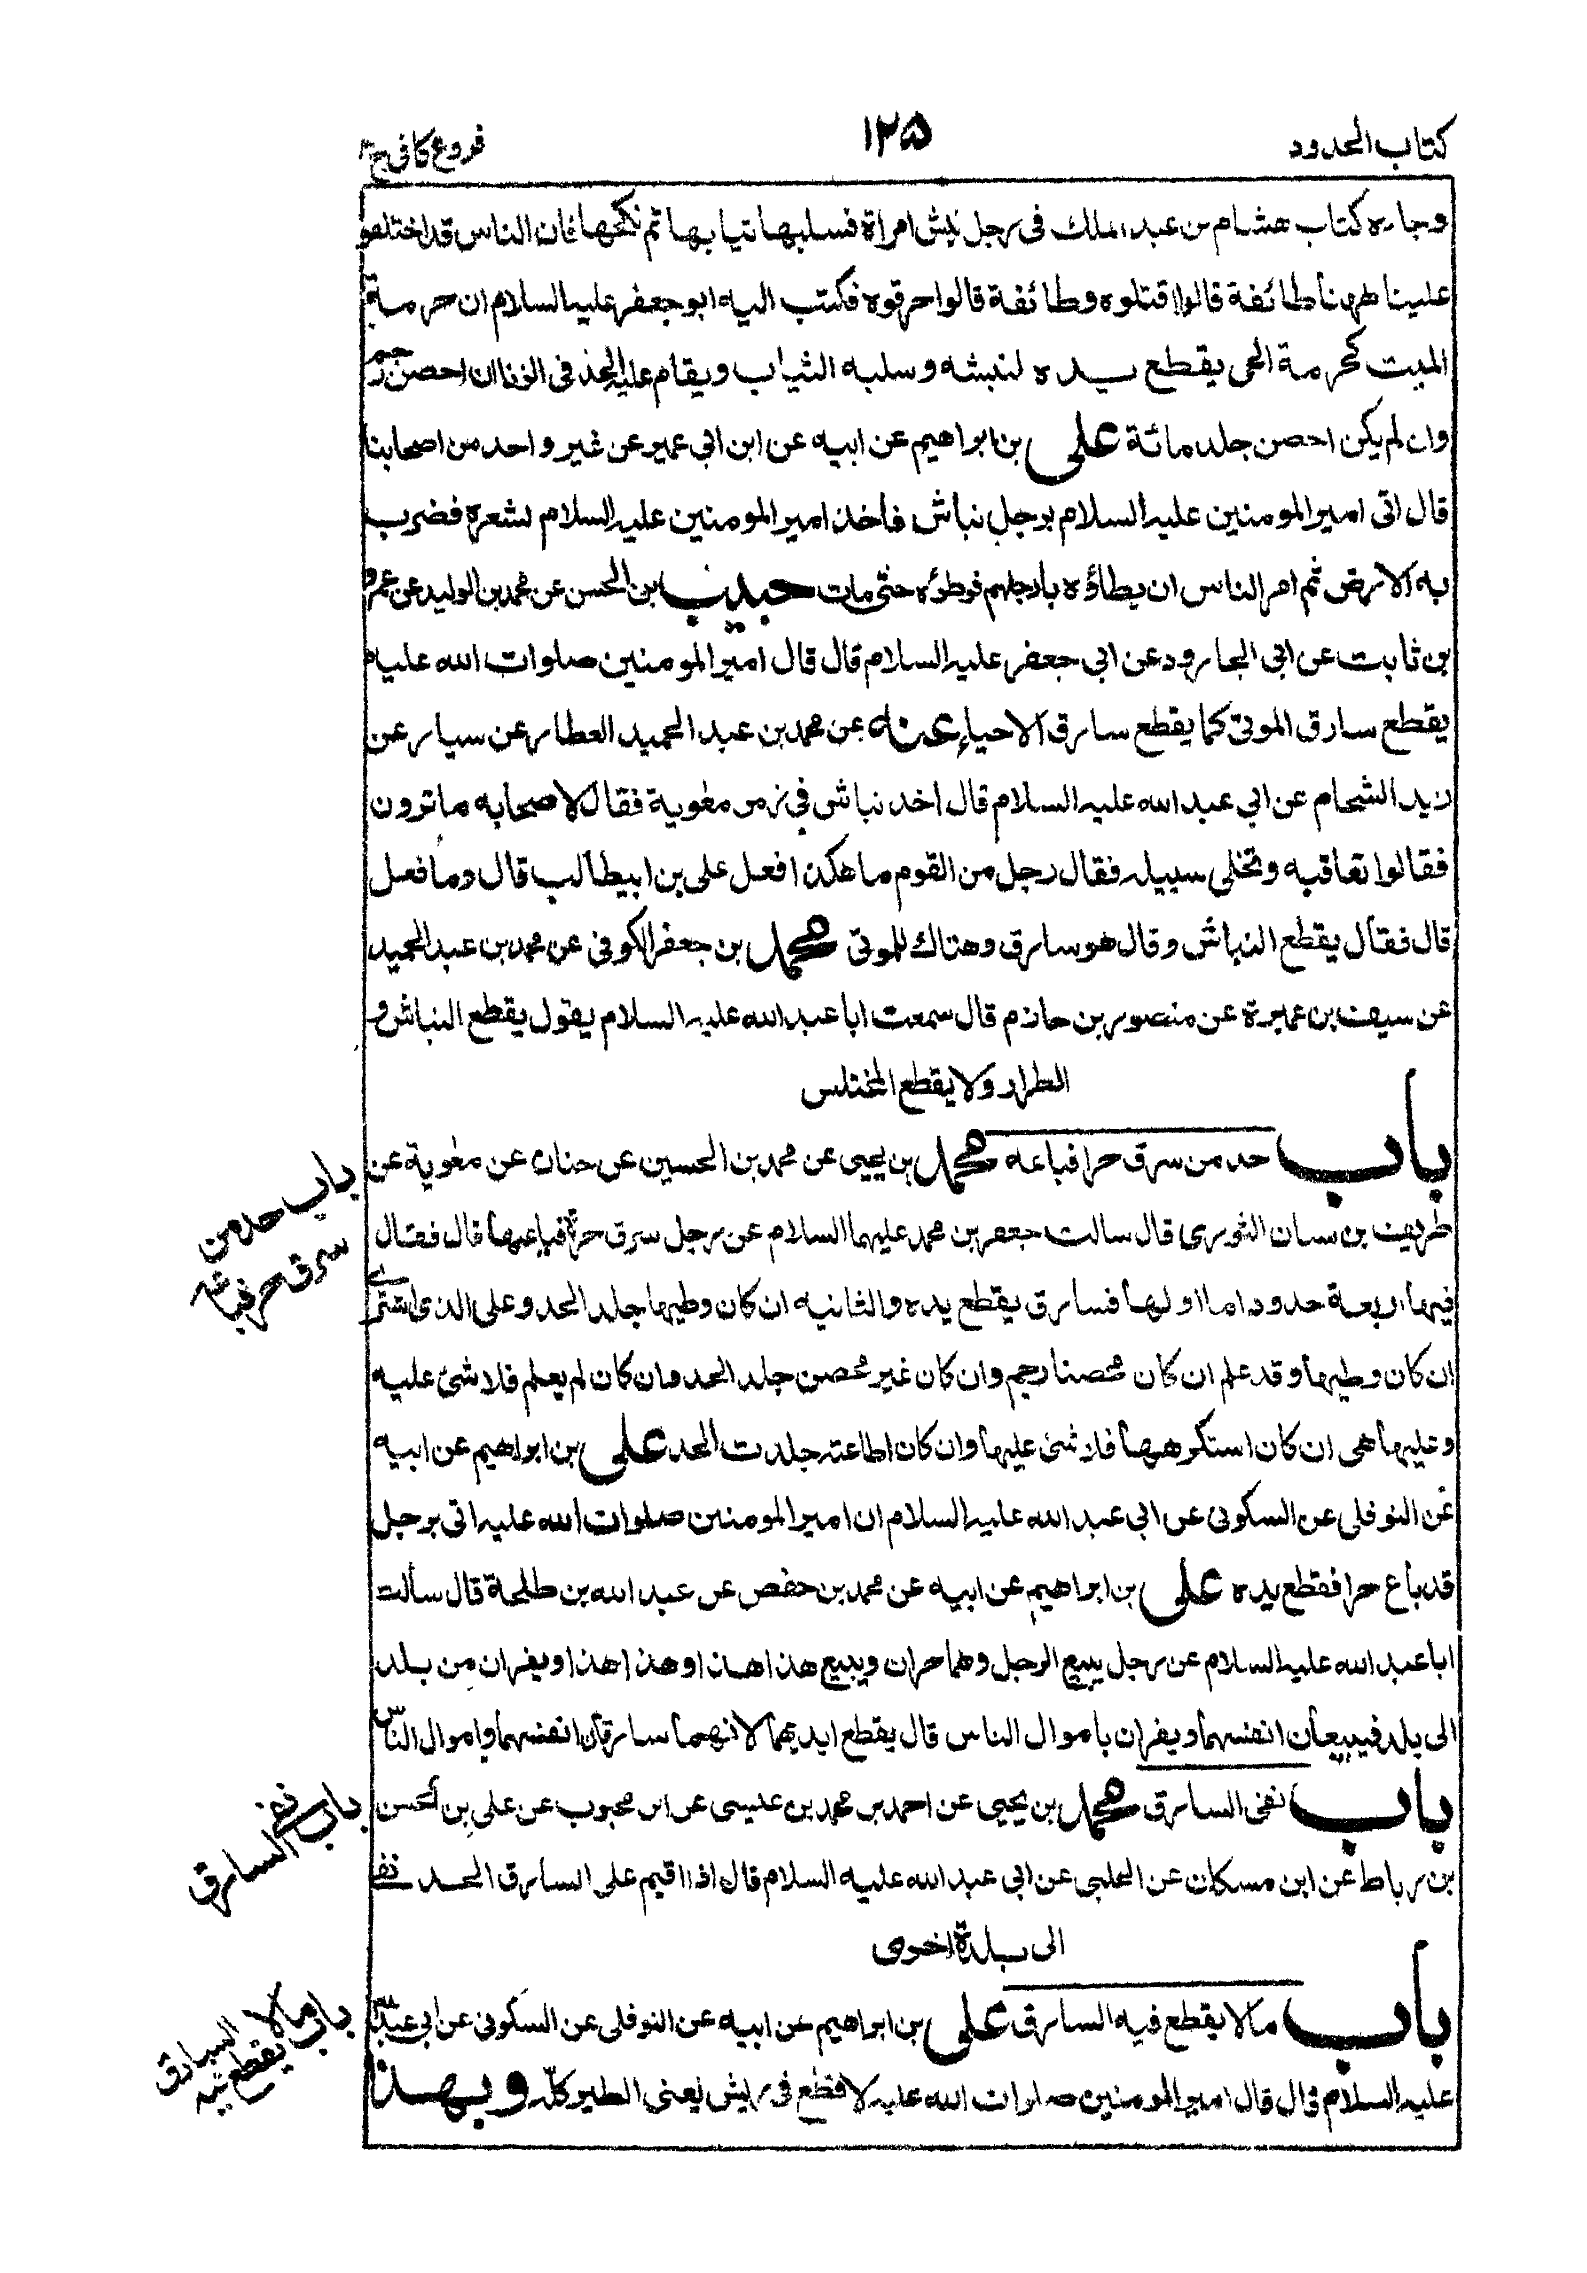 كتاب الحدود
١٢٥
فروع كافى ج
وجاءه كتاب هشام بن عبد الملك فى رجل نبش امراة فسلبها ثيابها ثم نكحها فان الناس قد اختلفوا
علينا ههنا طائفة قالوا اقتلوه وطائفة قالوا احرقوه فكتب اليه ابو جعفر عليه السلام ان حرمة
الميت كحرمة الحى يقطع يده لنبشه وسلبه الثياب ويقام عليه الحد فى الزنا ان احصن رجم
وان لم يكن احصن جلد مائة على بن ابراهيم عن ابيه عن ابن ابى عمير عن غير واحد من اصحابنا
قال اتى امير المومنين عليه السلام برجل نباش فأخذ امير المومنين عليه السلام بشعره فضرب
به الارض ثم امر الناس ان يطاؤه بأرجلهم فوطؤه حتى مات حبيب بن الحسن عن محمد بن الوليد عن عمرو
بن ثابت عن ابى الجارود عن ابى جعفر عليه السلام قال قال امير المومنين صلوات الله عليه
يقطع سارق الموتى كما يقطع سارق الاحياء عنه عن محمد بن عبد الحميد العطار عن سيار عن
زيد الشحام عن ابى عبد الله عليه السلام قال اخذ نباش فى زمن معوية فقال لاصحابه ما ترون
فقالوا تعاقبه وتخلى سبيله فقال رجل من القوم ما هكذا فعل على بن ابيطالب قال وما فعل
قال فقال يقطع النباش وقال هو سارق وهتاك للموتى محمد بن جعفر الكوفى عن محمد بن عبد الحميد
عن سيف بن عميرة عن منصور بن حازم قال سمعت ابا عبد الله عليه السلام يقول يقطع النباش و
الطرار ولا يقطع المختلس
باب حد من سرق حرا فباعه محمد بن يحيى عن محمد بن الحسين عن حنان عن معوية عن
طريف بن سنان الثورى قال سالت جعفر بن محمد عليهما السلام عن رجل سرق حرة فباعها قال فقال
فيها اربعة حدود اما اولها فسارق يقطع يده والثانيه ان كان وطيها جلد الحد وعلى الذى اشترى
ان كان وطيها وقد علم ان كان محصنا رجم وان كان غير محصن جلد الحد وان كان لم يعلم فلا شئ عليه
وعليها هى ان كان استكرهها فلا شئ عليها وان كان اطاعته جلدت الحد على بن ابراهيم عن ابيه
عن النوفلى عن السكونى عن ابى عبد الله عليه السلام ان امير المومنين صلوات الله عليه اتى برجل
قد باع حرا فقطع يده على بن ابراهيم عن ابيه عن محمد بن حفص عن عبد الله بن طلحة قال سألت
ابا عبد الله عليه السلام عن رجل يبيع الرجل وهما حران ويبيع هذا هذا وهذا هذا ويفران من بلد
الى بلد فيبيعان انفسهما ويفران باموال الناس قال يقطع ايديهما لانهما سارقان انفسهما واموال الناس
باب نفى السارق محمد بن يحيى عن احمد بن محمد بن عيسى عن ابن محبوب عن على بن الحسن
بن رباط عن ابن مسكان عن الحلبى عن ابى عبد الله عليه السلام قال اذا اقيم على السارق الحد نفى
الى بلدة اخرى
باب مالا يقطع فيه السارق على بن ابراهيم عن ابيه عن النوفلى عن السكونى عن ابى عبد الله
عليه السلام قال قال امير المومنين صلوات الله عليه لا قطع فى ريش يعنى الطير كله وبهذا
باب حد من
سرق حر فباعه
باب نفى
السارق
باب مالا
يقطع فيه
السارق